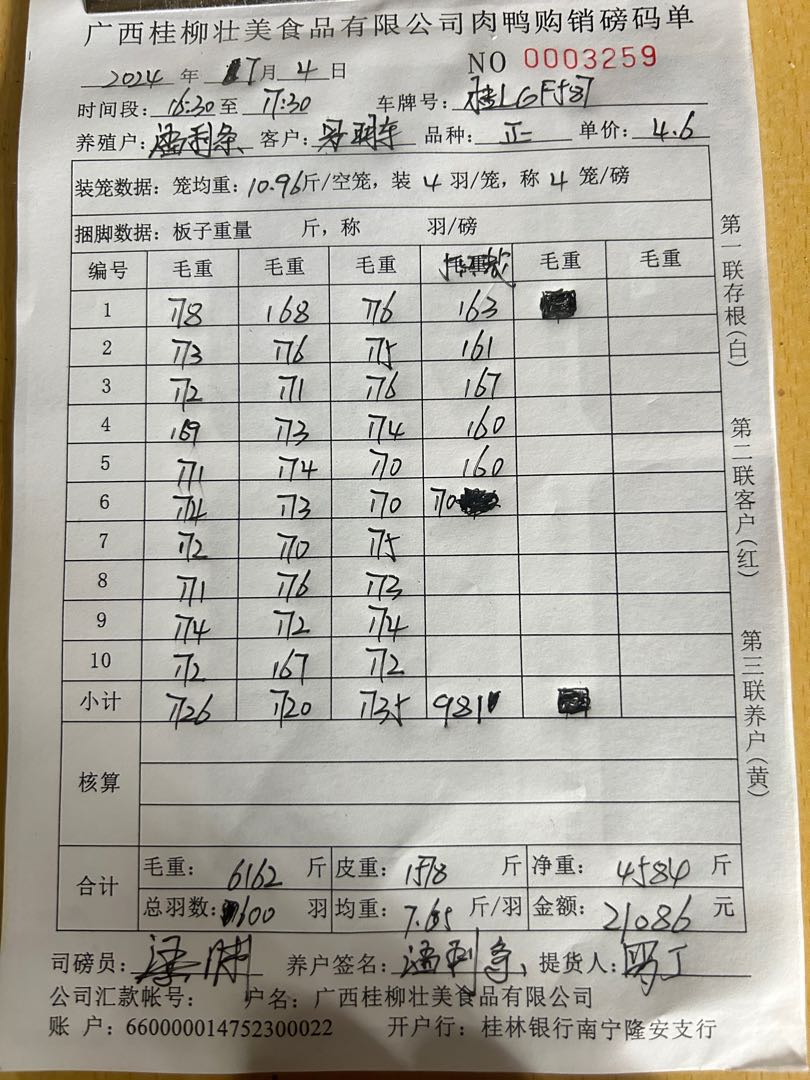 广西桂柳壮美食品有限公司肉鸭购销磅码单
2024 年 7月 4 日 NO 0003259
时间段: 16:30 至 17:30 车牌号:
养殖户: 客户: 品种: 正 单价: 4.6
装笼数据: 笼均重: 10.96斤/空笼, 装 4 羽/笼, 称 4 笼/磅
捆脚数据: 板子重量 斤, 称 羽/磅
编号 毛重 毛重 毛重 毛重 毛重
1 178 168 176 163
2 173 176 175 161
3 172 171 176 167
4 169 173 174 160
5 171 174 170 160
6 174 173 170 170
7 172 170 175
8 171 176 173
9 174 172 174
10 172 167 172
小计 1726 1720 1735 981
核算
合计 毛重: 6162 斤 皮重: 1578 斤 净重: 4584 斤
总羽数: 600 羽 均重: 斤/羽 金额: 21086 元
司磅员: 养户签名: 提货人:
公司汇款帐号: 户名: 广西桂柳壮美食品有限公司
账 户: 660000014752300022 开户行: 桂林银行南宁隆安支行
第一联存根(白)
第二联客户(红)
第三联养户(黄)